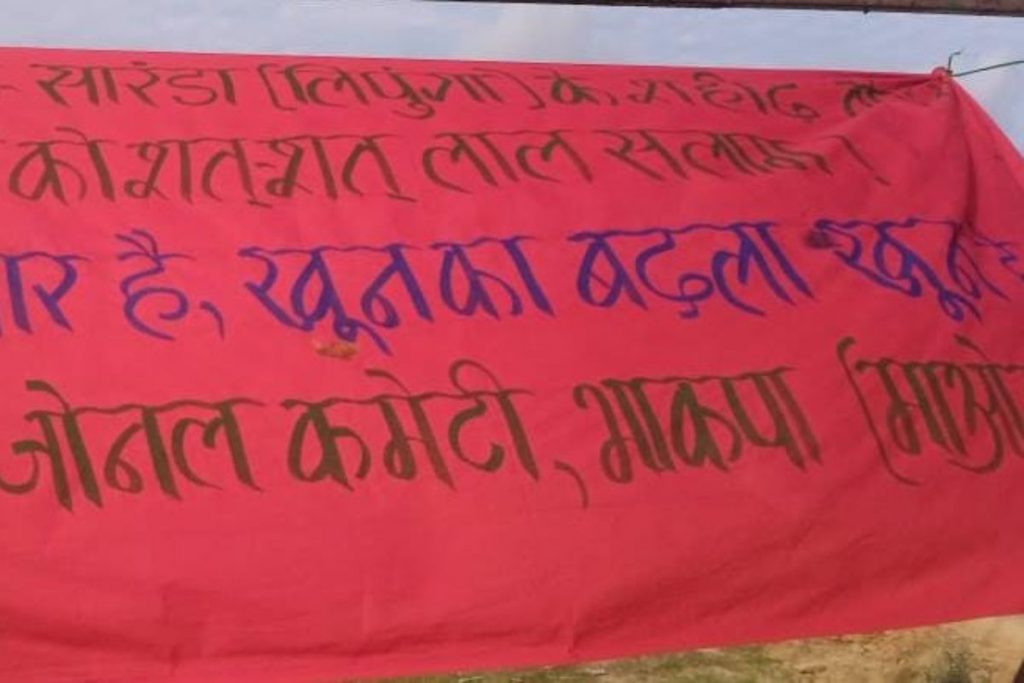 - सारंडा (लिपुंगा) के शहीद
को शत्-शत् लाल सलाम।
है, खून का बदला खून
जोनल कमेटी, भाकपा (माओ